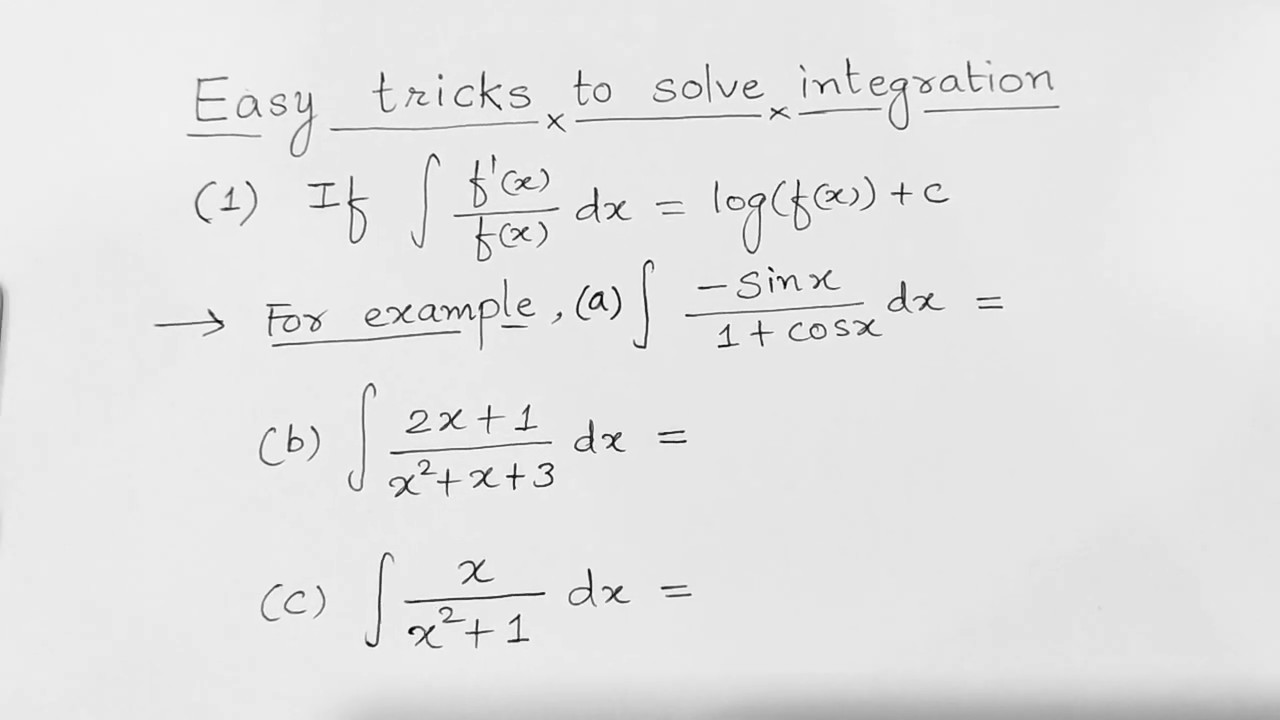 Easy tricks to solve integration
(1) If ∫ f'(x)/f(x) dx = log(f(x)) + c
→ For example, (a) ∫ -sinx/1+cosx dx =
(b) ∫ 2x+1/x²+x+3 dx =
(c) ∫ x/x²+1 dx =